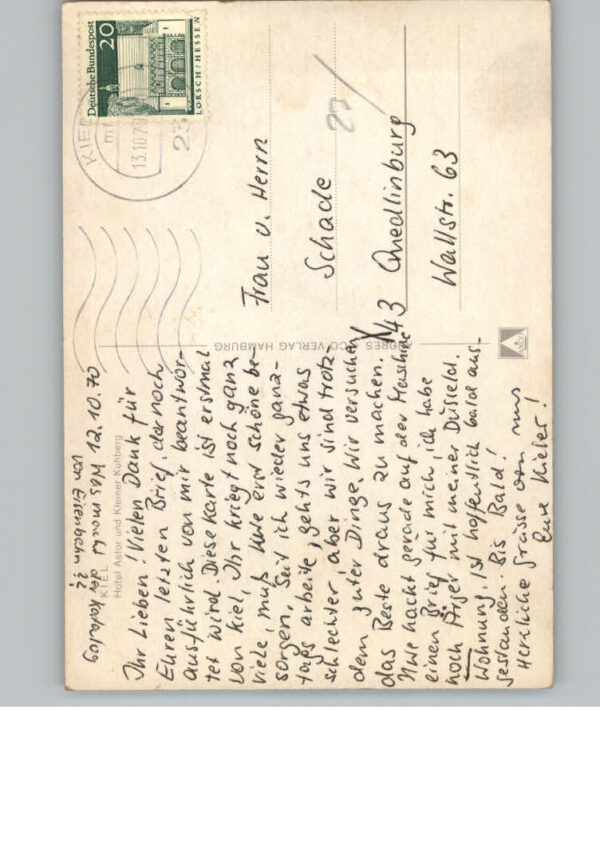 12.10.70
Was macht der Katalog
von Eisenbahn
??
KIEL
Hotel Astor und Kleiner Kuhberg
Ihr Lieben! Vielen Dank für
Euren letzten Brief, der noch
ausführlich von mir beantwor-
tet wird. Diese Karte ist erstmal
von Kiel, Ihr kriegt noch ganz
viele, muß Uwe erst schöne be-
sorgen. Seit ich wieder ganz-
tags arbeite, gehts uns etwas
schlechter, aber wir sind trotz-
dem guter Dinge. Wir versuchen
das Beste draus zu machen.
Uwe hackt gerade auf der Maschine
einen Brief für mich, ich habe
noch Ärger mit meiner Düsseld.
Wohnung. Ist hoffentlich bald aus-
gestanden. Bis Bald!
Herzliche Grüsse von uns
Eure Kieler!
ANDRES + CO VERLAG HAMBURG
Deutsche Bundespost
20
LORSCH/HESSEN
KIEL
13.10.70
23
27/
Frau u. Herrn
Schade
X 43 Quedlinburg
Wallstr. 63